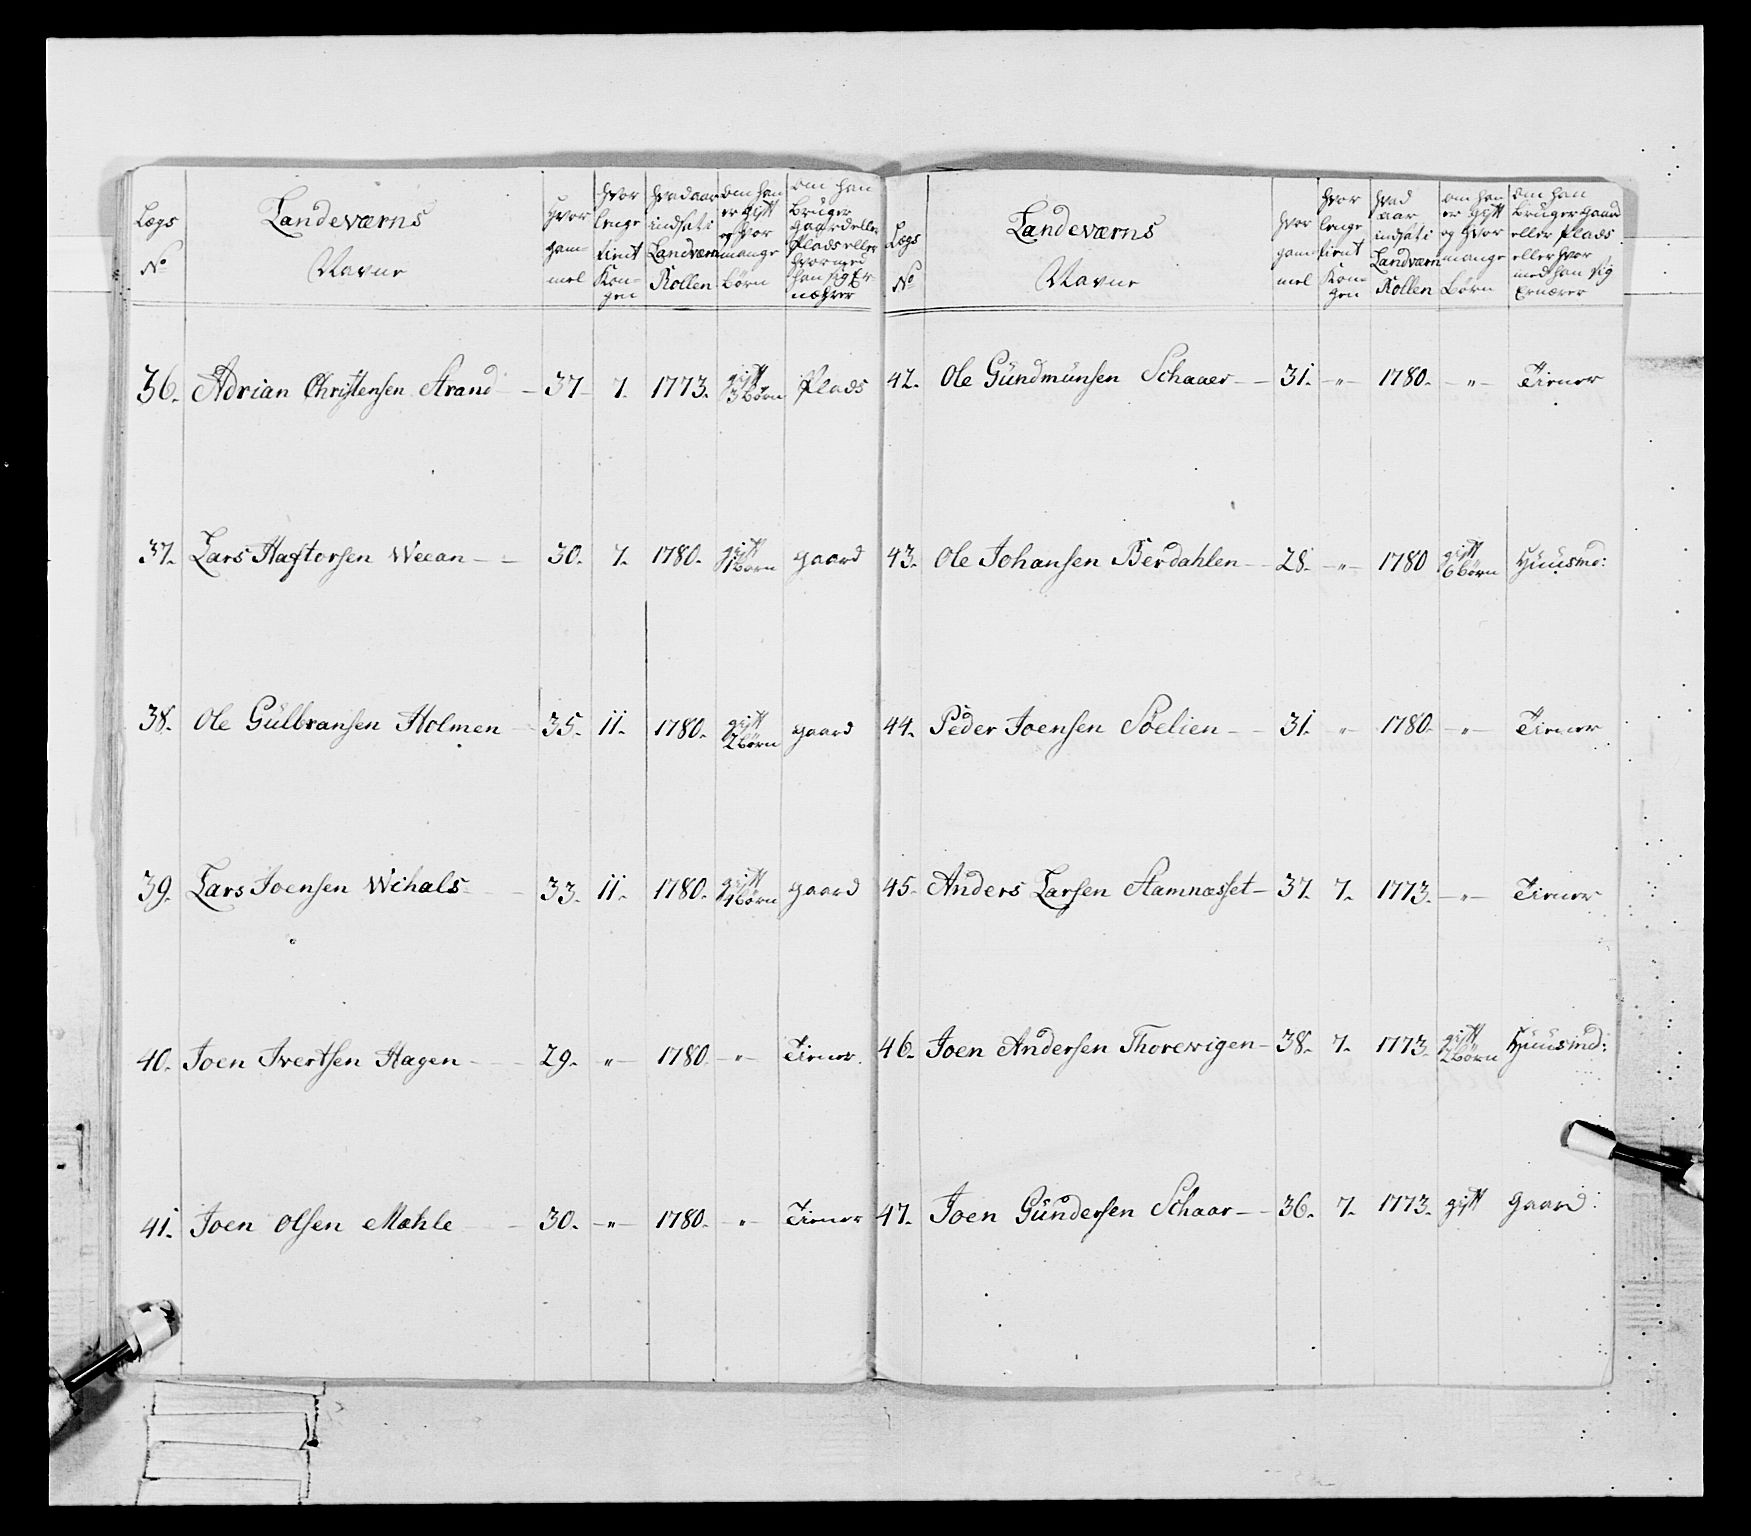 Lægs
No
Landeværns
Navne
hvor
gam-
mel
hvor
lenge
tient
Kon-
gen
hvad aar
indsat i
Landværn
Rollen
om han
er gift
og hvor
mange
Børn
om han
bruger
gaard eller
Plads eller
hvormed
han sig Er-
næhrer
36. Adrian Christensen Strand - 37 - 7. 1773. gift 3 Børn Plads
37. Lars Haftorsen Weean - - 30. 7. 1780. gift 1 Børn gaard
38. Ole Gülbransen Holmen 35. 11. 1780. gift 2 Børn gaard
39. Lars Joensen Wihals - 33. 11. 1780. gift 4 Børn gaard
40. Joen Ivertsen Hagen - 29. - " - 1780 - " - Tiener.
41. Joen Olsen Mæhle - 30. - " - 1780. - " - Tiener
Lægs
No
Landeværns
Navne
hvor
gam-
mel
hvor
lenge
tient
Kon-
gen
hvad
aar
indsat i
Landværn
Rollen
om han
er gift
og hvor
mange
Børn
om han
bruger gaard
eller Plads
eller hvor
med han sig
Ernærer
42. Ole Gündmünsen Schaaer - - 31. - " - 1780. - " - Tiener
43. Ole Johansen Berdahlen - 28. - " - 1780 gift 6 Børn Huusmd:
44. Peder Joensen Soelien - - 31. " 1780. - " - Tiener
45. Anders Larsen Stamnæsset - 37. 7. 1773. - " - Tiener
46. Joen Andersen Thorewigen - 38. 7. 1773. gift 2 Børn Huusmd:
47. Joen Gündersen Schaar - - 36. 7. 1773. gift gaard